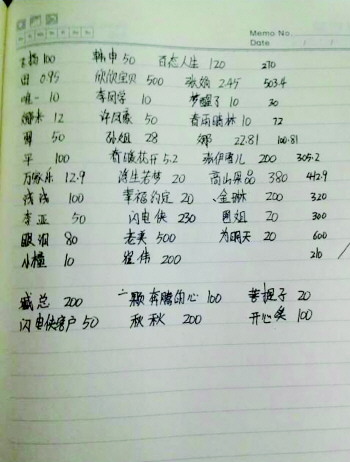 Memo No.
Date
100 韩申 50 百态人生 120 270
田 0.95 欣欣宝贝 500 张娟 2.45 503.4
唯一 10 李同学 10 梦醒了 10 30
娜木 12 许凤嬴 50 春雨晓林 10 72
翠 50 孙姐 28 娜 22.81 100.81
平 100 春暖花开 5.2 张伊宝儿 200 305.2
万家乐 12.9 浮生若梦 20 高山果品 380 412.9
浅浅 100 幸福约定 20 金琳 200 320
李亚 50 闪电侠 230 周姐 20 300
眼泪 80 老美 500 为明天 20 600
小橦 10 翟伟 200 210
臧总 200 一颗奔腾的心 100 菩提子 20
闪电侠客户 50 秋秋 200 开心笑 100